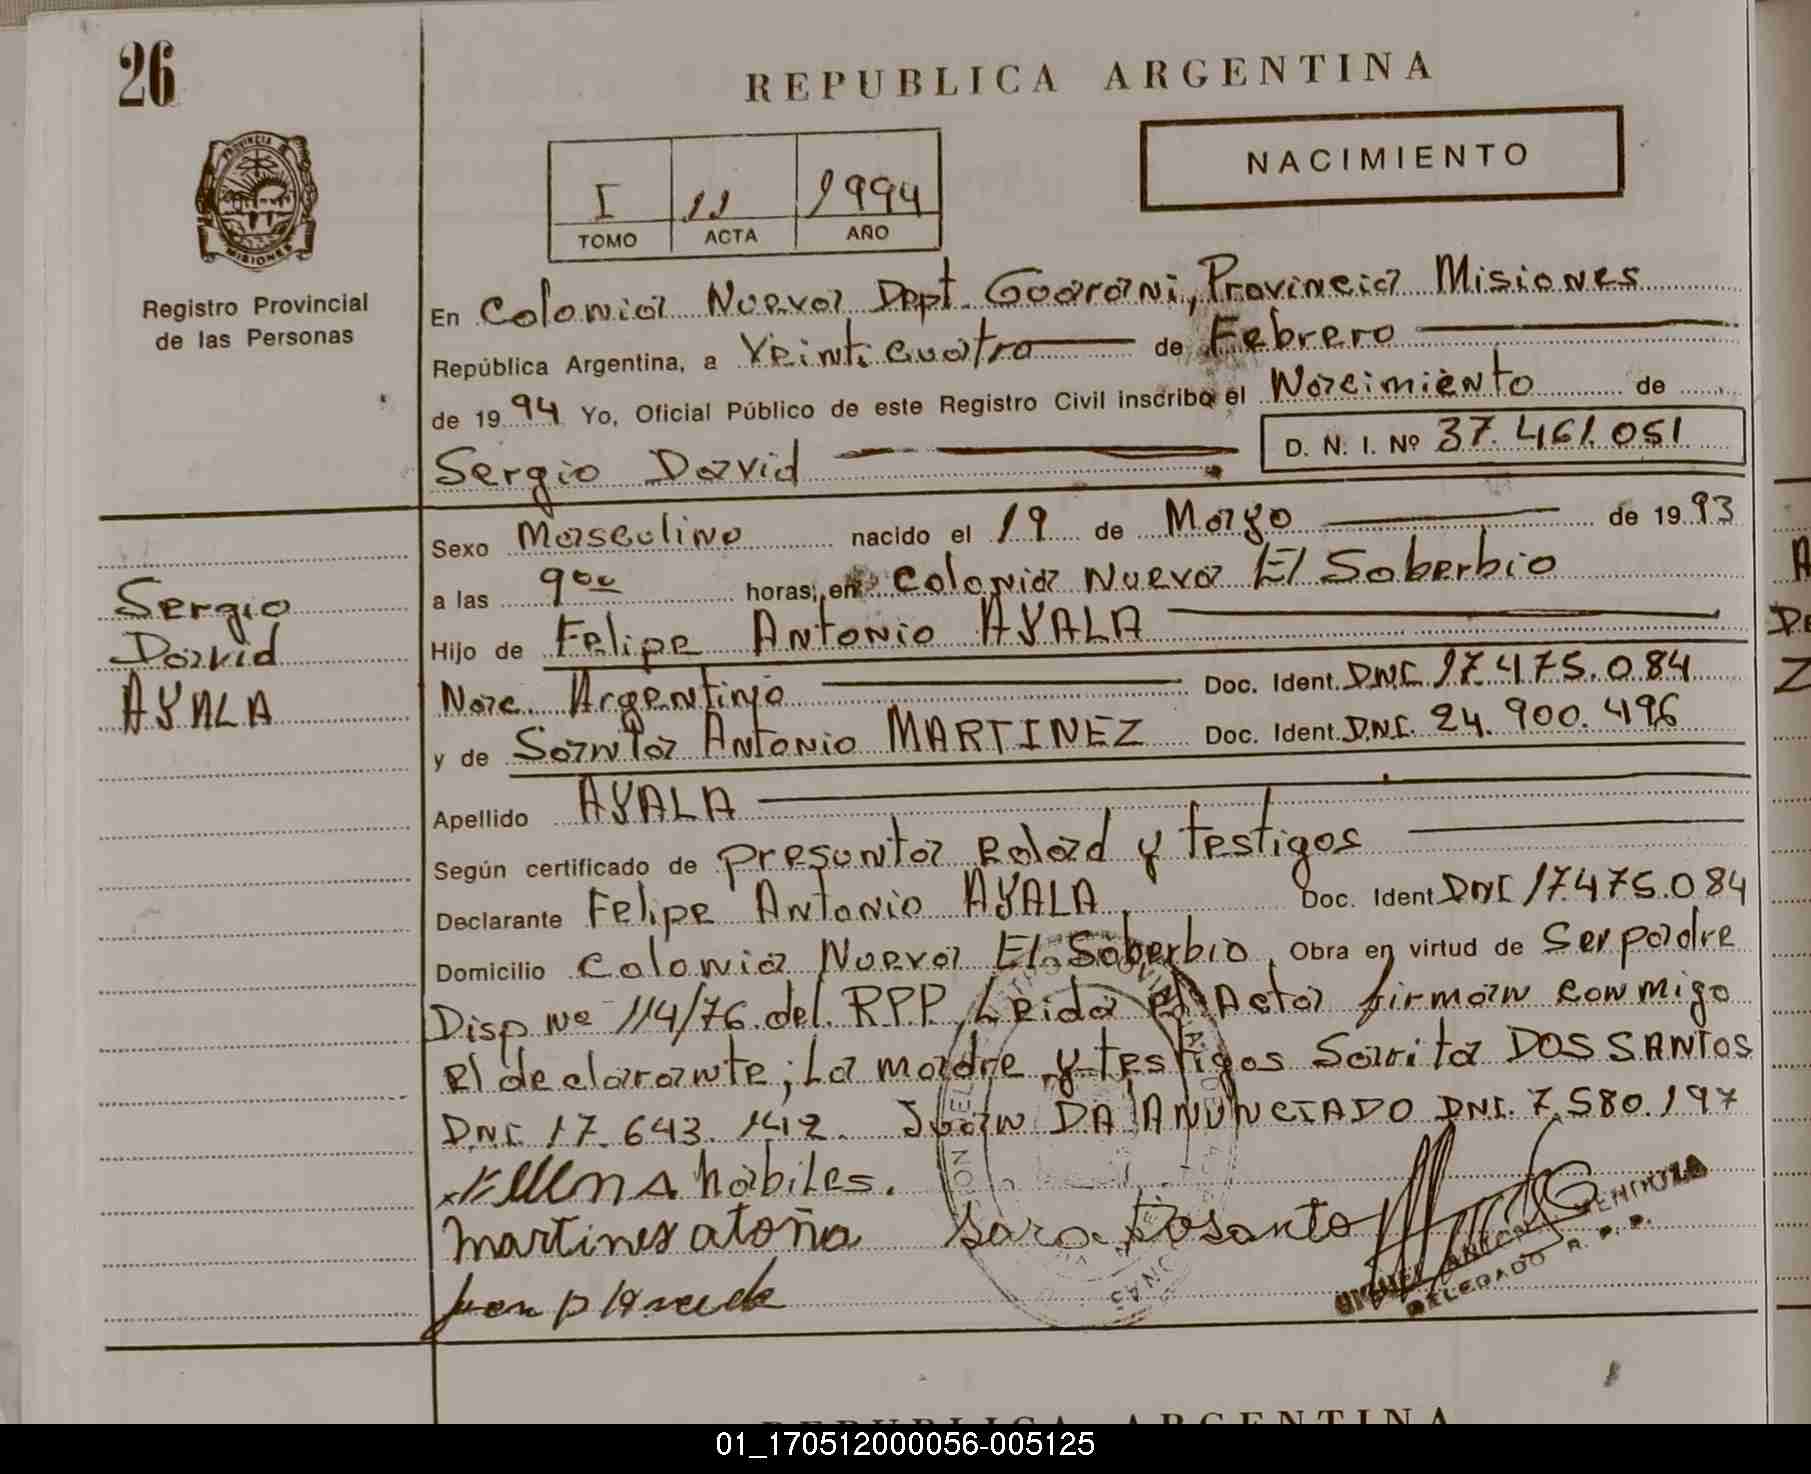 26
REPUBLICA ARGENTINA
PROVINCIA DE
MISIONES
Registro Provincial
de las Personas
I 11 1994
TOMO ACTA AÑO
NACIMIENTO
En Colonia Nueva Dept. Guarani, Provincia Misiones
República Argentina, a Veinticuatro de Febrero
de 1994 Yo, Oficial Público de este Registro Civil inscribo el Nacimiento de
Sergio David D. N. I. Nº 37.461.051
Sexo Masculino nacido el 19 de Mayo de 1993
a las 9 00 horas, en Colonia Nueva El Soberbio
Hijo de Felipe Antonio AYALA
Nac. Argentino Doc. Ident. DNI 17.475.084
y de Santa Antonio MARTINEZ Doc. Ident. D.N.I. 24.900.496
Apellido AYALA
Según certificado de presunta edad y testigos
Declarante Felipe Antonio AYALA Doc. Ident DNI 17.475.084
Domicilio Colonia Nueva El Soberbio, Obra en virtud de Ser padre
Disp Nº 114/76 del RPP, Leida el Acta firman conmigo
el declarante, La madre y testigos Sarita DOS SANTOS
DNI. 17.643.142. Juan DA ANUNCIADO DNI. 7.580.197
habiles.
Martines atoña Sara Dosanto
MIGUEL ANTONIO MENDOZA
DELEGADO R. P. P.
Sergio
David
AYALA
REPUBLICA ARGENTINA
01_170512000056-005125